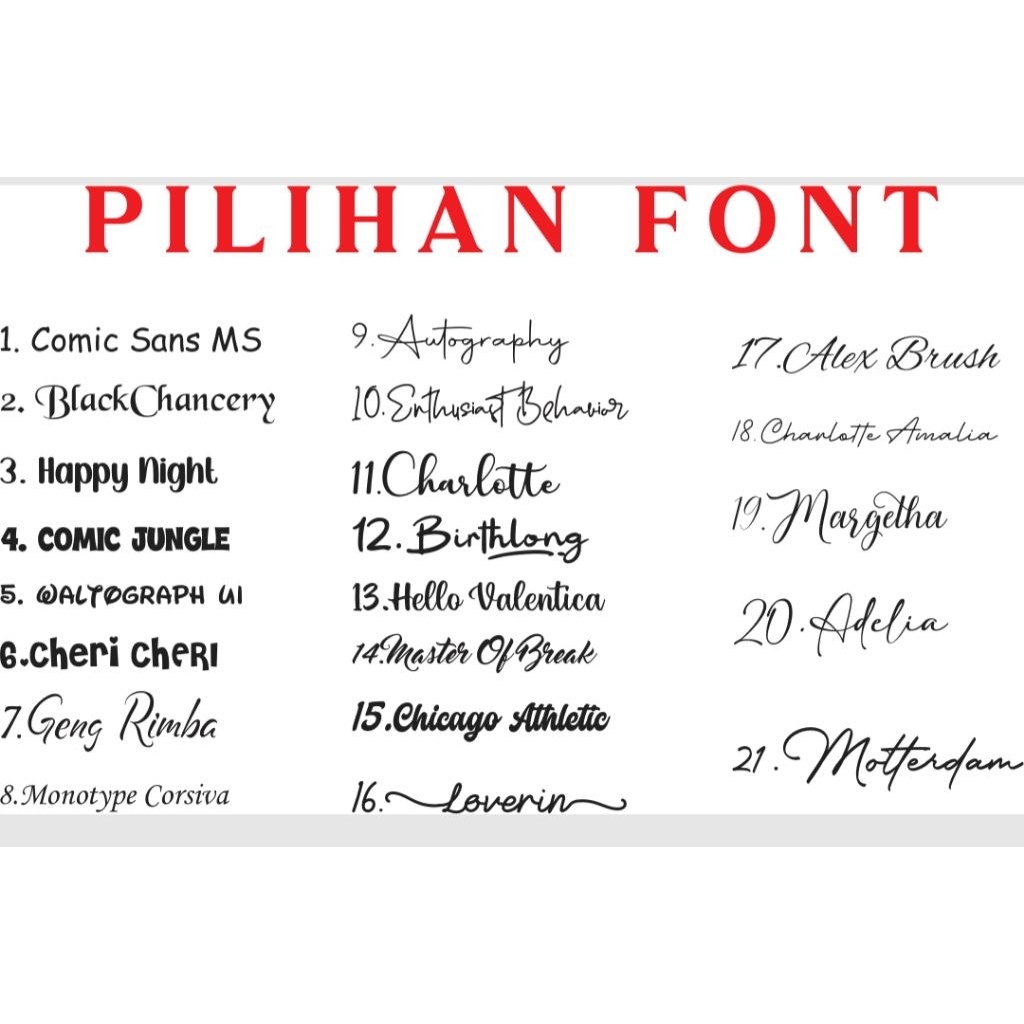 PILIHAN FONT
1. Comic Sans MS
2. BlackChancery
3. Happy Night
4. COMIC JUNGLE
5. WALTOGRAPH UI
6.Cheri CheRI
7.Geng Rimba
8.Monotype Corsiva
9.Autography
10.Enthusiast Behavior
11.Charlotte
12.Birthlong
13.Hello Valentica
14.Master Of Break
15.Chicago Athletic
16.Loverin
17.Alex Brush
18.Charlotte Amalia
19.Margetha
20.Adelia
21.Motterdam